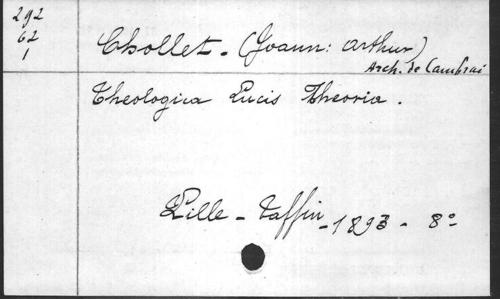 292
62
1
Chollet - (Joann: Arthur)
Arch. de Cambrai
Theologica Lucis Theoria.
Lille - Taffin - 1893 - 8º